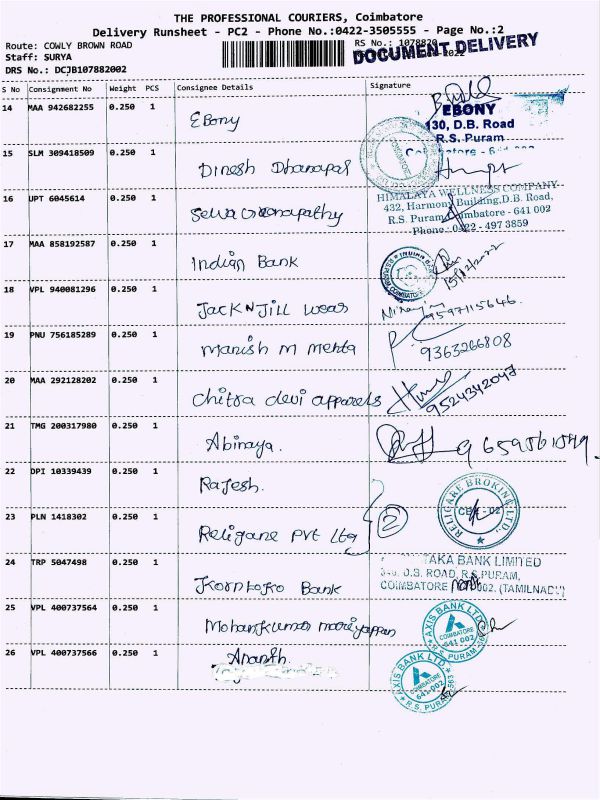 THE PROFESSIONAL COURIERS, Coimbatore
Delivery Runsheet - PC2 - Phone No.:0422-3505555 - Page No.:2
Route: COWLY BROWN ROAD
RS No.: 1078820
Staff: SURYA
DOCUMENT DELIVERY
2022
DRS No.: DCJB107882002
S No Consignment No Weight PCS Consignee Details Signature
14 MAA 942682255 0.250 1 Ebony
EBONY
130, D.B. Road
R.S. Puram
15 SLM 309418509 0.250 1 Dinesh Dhanapal
16 UPT 6045614 0.250 1
HIMALAYA WELLNESS COMPANY
432, Harmony Building, D.B. Road,
R.S. Puram, Coimbatore - 641 002
Phone: 0422 - 497 3859
17 MAA 858192587 0.250 1 Indian Bank
15/12/2022
18 VPL 940081296 0.250 1 Jack N Jill wear
9597115646
19 PNU 756185289 0.250 1 Manish M Mehta
9363266808
20 MAA 292128202 0.250 1 Chitra devi apparels
9524342047
21 TMG 200317980 0.250 1 Abinaya.
22 DPI 10339439 0.250 1 Rajesh.
RELIGARE BROKING LTD.,
23 PLN 1418302 0.250 1 Religare Pvt Ltd
2
24 TRP 5047498 0.250 1 Bank
TAKA BANK LIMITED
D.B. ROAD, R.S.PURAM,
COIMBATORE 002. (TAMILNADU)
25 VPL 400737564 0.250 1 Mohankumar mariyappan
AXIS BANK LTD.
COIMBATORE
641 002
R.S. PURAM
26 VPL 400737566 0.250 1 Ananth.
AXIS BANK LTD.
COIMBATORE
641-002
R.S. PURAM